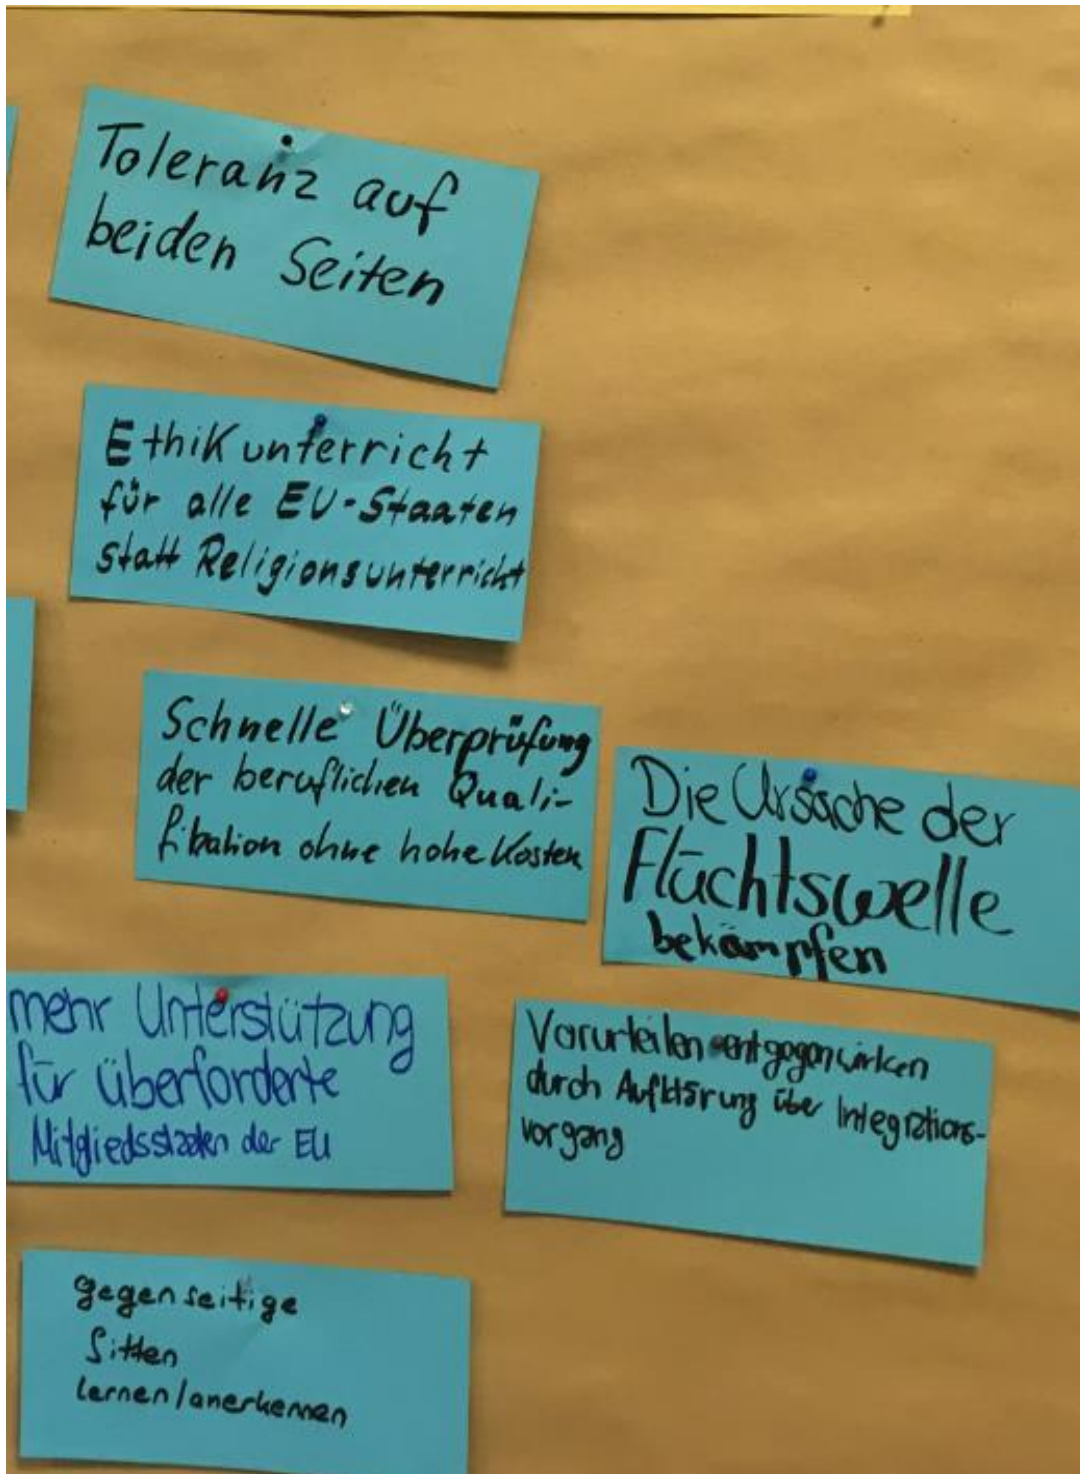 Toleranz auf
beiden Seiten
Ethikunterricht
für alle EU-Staaten
statt Religionsunterricht
Schnelle Überprüfung
der beruflichen Quali-
fikation ohne hohe Kosten
Die Ursache der
Flüchtswelle
bekämpfen
mehr Unterstützung
für überforderte
Mitgliedsstaaten der EU
Vorurteilen entgegenwirken
durch Aufklärung über Integrations-
vorgang
gegenseitige
Sitten
lernen/anerkennen